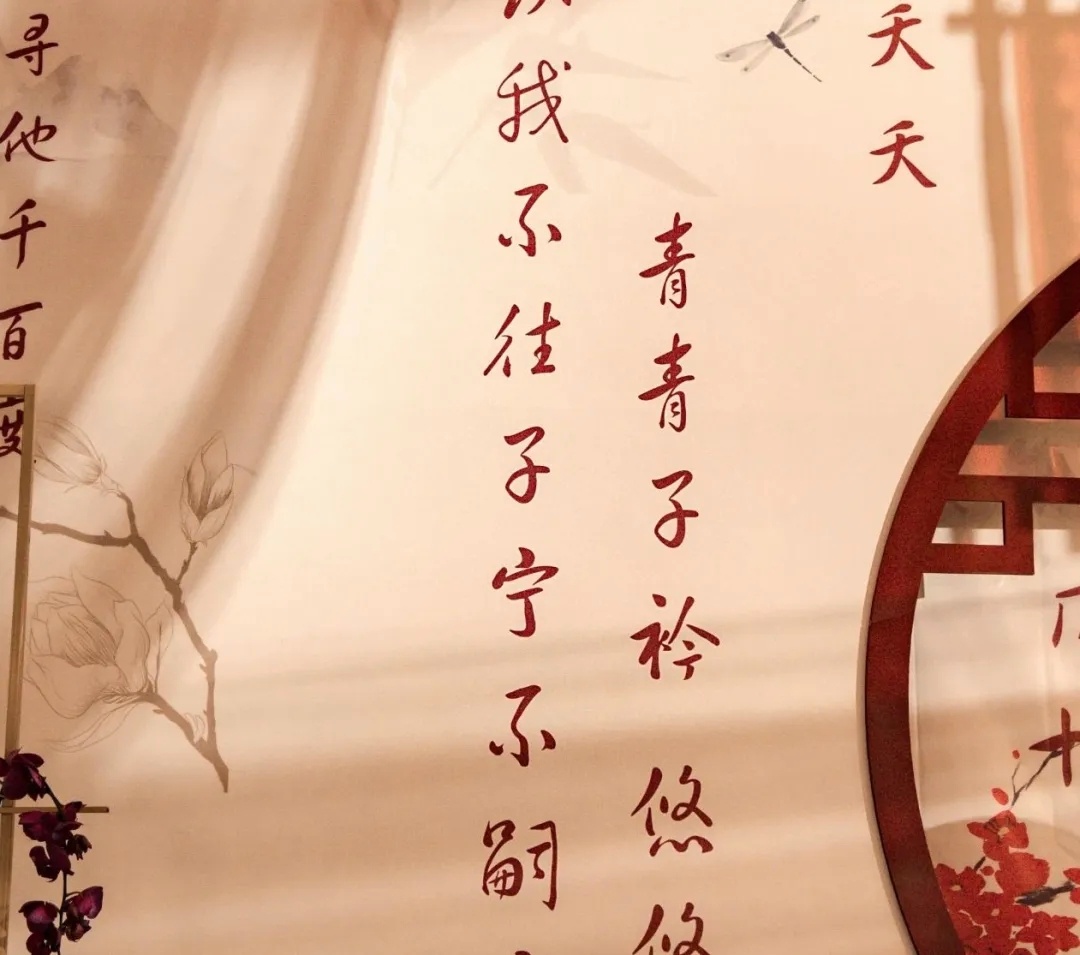 夭夭
青青子衿悠悠
我不往子宁不嗣
寻他千百度